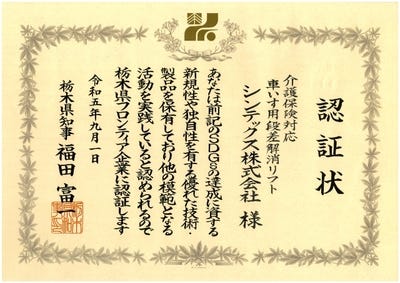 認証状
介護保険対応
車いす用段差解消リフト
シンテックス株式会社 様
あなたは前記のSDGsの達成に資する
新規性や独自性を有する優れた技術・
製品を保有しており他の模範となる
活動を実践していると認められるので
栃木県フロンティア企業に認証します
令和五年九月一日
栃木県知事 福田富一